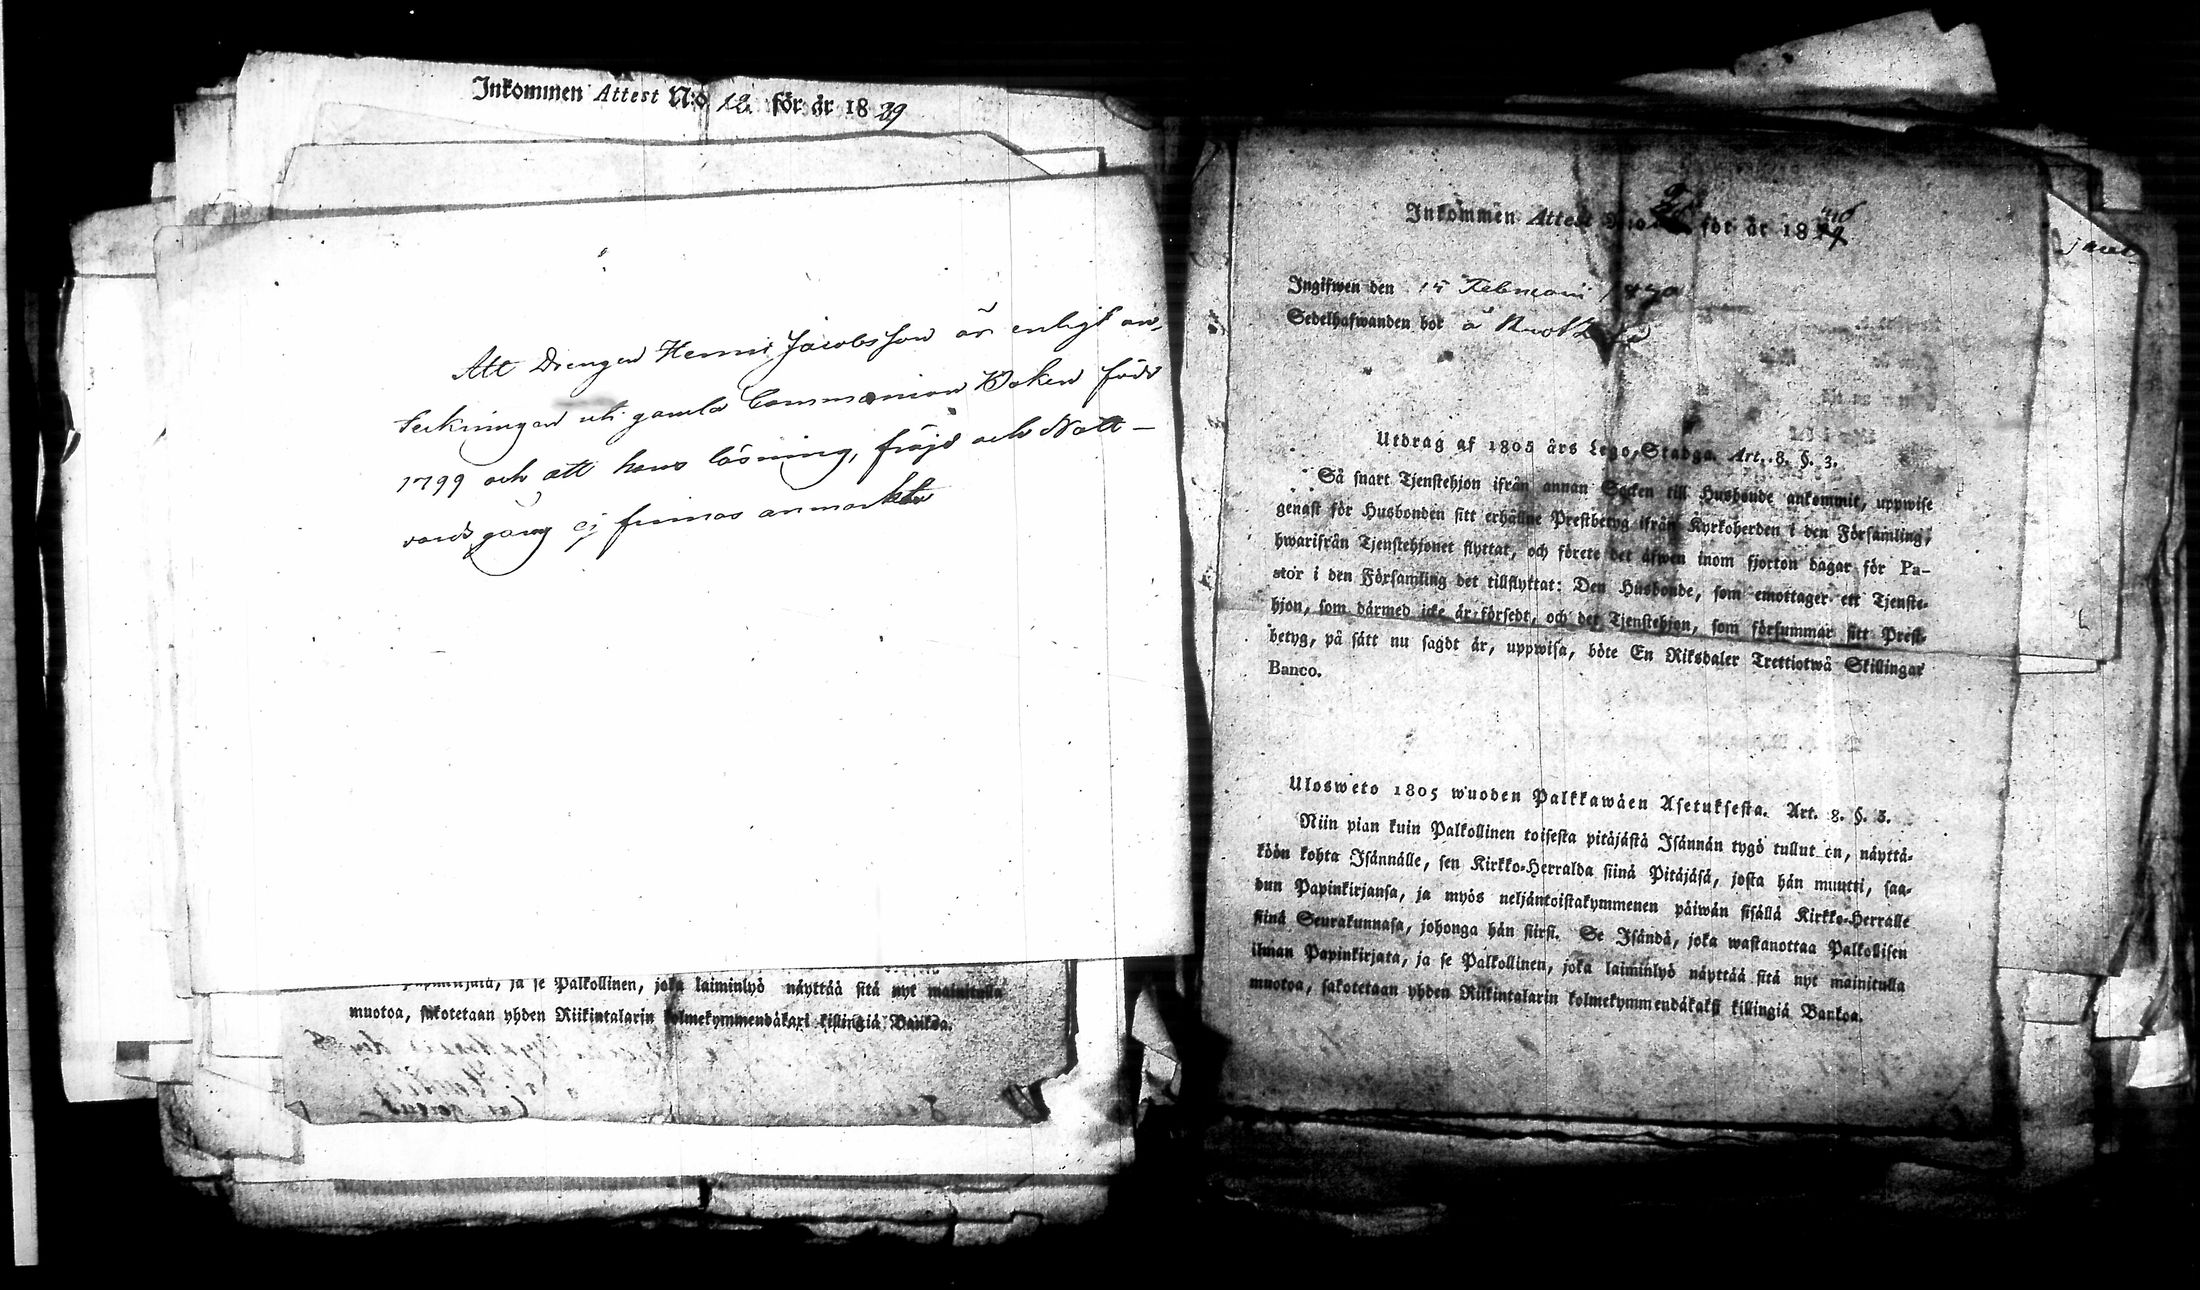 Inkommen Attest N:o 12. för år 1839
Att Drengen Henric Jacobsson är enligt an-
teckningen uti gamla Communion Boken född
1799 och att hans läsning, fräjd och Natt-
vards gång ej finnas anmärkta
ja se Palkollinen, joka laiminlyö näyttää sitä nyt mainitulla
muotoa, sakotetaan yhden Riikintalarin kolmekymmendäkaxi killingiä Bankoa.
Inkommen Attest för år 18
Ingifwen den 15 Februarii
Sedelhafwanden bor å
Utdrag af 1805 års Lego-Stadga. Art. 8. §. 3.
Så snart Tjenstehjon ifrån annan Socken till Husbonde ankommit, uppwise
genast för Husbonden sitt erhållne Prestbetyg ifrån Kyrkoherden i den Församling,
hwarifrån Tjenstehjonet flyttat, och förete det äfwen inom fjorton dagar för Pa-
stor i den Församling det tillflyttat: Den Husbonde, som emottager ett Tjenste-
hjon, som därmed icke är försedt, och det Tjenstehjon, som försummar sitt Prest-
betyg, på sätt nu sagdt är, uppwisa, böte En Riksdaler Trettiotwå Skillingar
Banco.
Ulosweto 1805 wuoden Palkkawäen Asetuksesta. Art. 8. §. 3.
Niin pian kuin Palkollinen toisesta pitäjästä Isännän tygö tullut on, näyttä-
köön kohta Isännälle, sen Kirkko-Herralda siinä Pitäjäsä, josta hän muutti, saa-
dun Papinkirjansa, ja myös neljäntoistakymmenen päiwän sisällä Kirkko-Herralle
siinä Seurakunnasa, johonga hän siirsi. Se Isändä, joka wastanottaa Palkollisen
ilman Papinkirjata, ja se Palkollinen, joka laiminlyö näyttää sitä nyt mainitulla
muotoa, sakotetaan yhden Riikintalarin kolmekymmendäkaksi killingiä Bankoa.